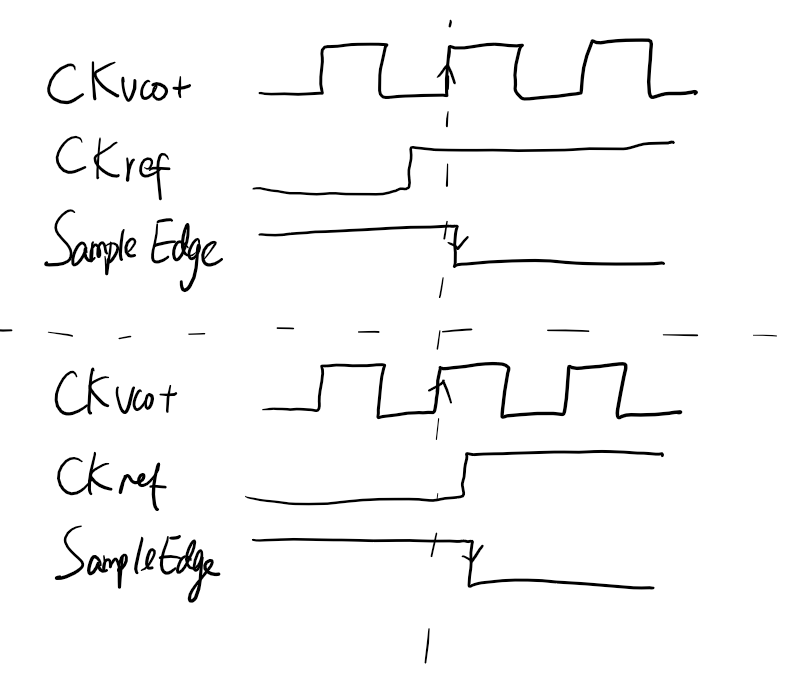 CKvco+
CKref
Sample Edge
CKvco+
CKref
Sample Edge